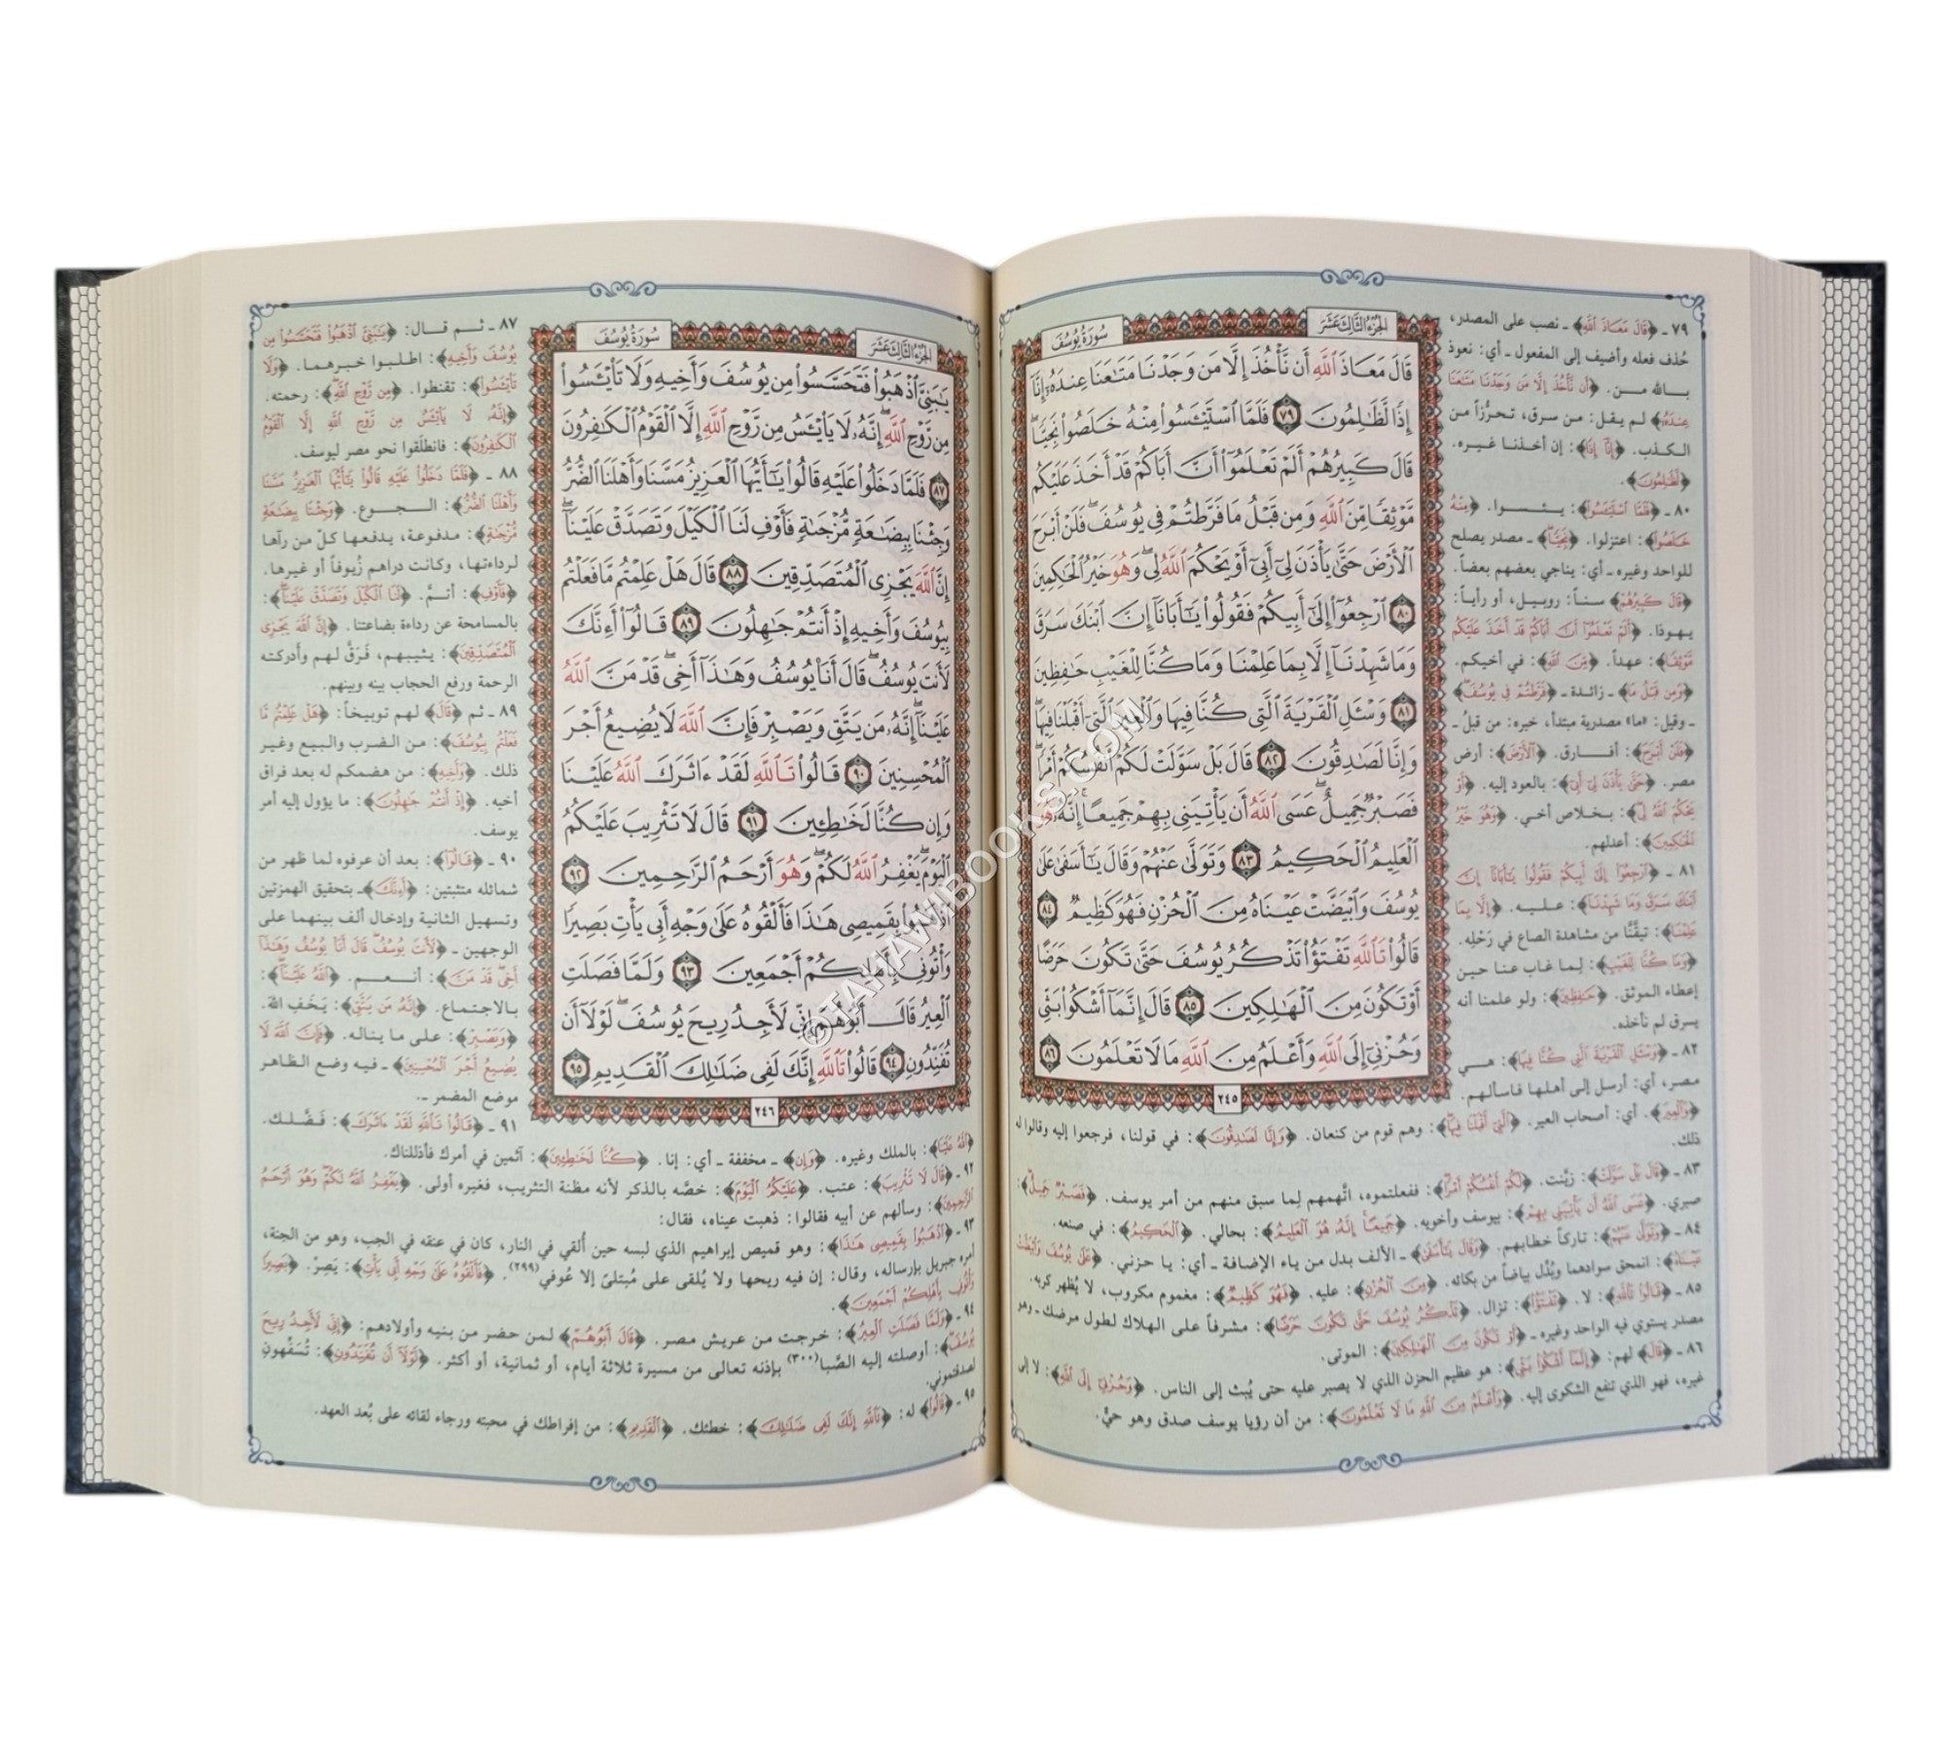 الجزء الثالث عشر
سورة يوسف
قَالَ مَعَاذَ ٱللَّهِ أَن نَّأْخُذَ إِلَّا مَن وَجَدْنَا مَتَٰعَنَا عِندَهُۥٓ إِنَّآ
إِذًا لَّظَٰلِمُونَ ٧٩ فَلَمَّا ٱسْتَيْـَٔسُوا۟ مِنْهُ خَلَصُوا۟ نَجِيًّا ۖ
قَالَ كَبِيرُهُمْ أَلَمْ تَعْلَمُوٓا۟ أَنَّ أَبَاكُمْ قَدْ أَخَذَ عَلَيْكُم
مَّوْثِقًا مِّنَ ٱللَّهِ وَمِن قَبْلُ مَا فَرَّطتُمْ فِى يُوسُفَ ۖ فَلَنْ أَبْرَحَ
ٱلْأَرْضَ حَتَّىٰ يَأْذَنَ لِىٓ أَبِىٓ أَوْ يَحْكُمَ ٱللَّهُ لِى ۖ وَهُوَ خَيْرُ ٱلْحَٰكِمِينَ
٨٠ ٱرْجِعُوٓا۟ إِلَىٰٓ أَبِيكُمْ فَقُولُوا۟ يَٰٓأَبَانَآ إِنَّ ٱبْنَكَ سَرَقَ
وَمَا شَهِدْنَآ إِلَّا بِمَا عَلِمْنَا وَمَا كُنَّا لِلْغَيْبِ حَٰفِظِينَ
٨١ وَسْـَٔلِ ٱلْقَرْيَةَ ٱلَّتِى كُنَّا فِيهَا وَٱلْعِيرَ ٱلَّتِىٓ أَقْبَلْنَا فِيهَا ۖ
وَإِنَّا لَصَٰدِقُونَ ٨٢ قَالَ بَلْ سَوَّلَتْ لَكُمْ أَنفُسُكُمْ أَمْرًا ۖ
فَصَبْرٌ جَمِيلٌ ۖ عَسَى ٱللَّهُ أَن يَأْتِيَنِى بِهِمْ جَمِيعًا ۚ إِنَّهُۥ هُوَ
ٱلْعَلِيمُ ٱلْحَكِيمُ ٨٣ وَتَوَلَّىٰ عَنْهُمْ وَقَالَ يَٰٓأَسَفَىٰ عَلَىٰ
يُوسُفَ وَٱبْيَضَّتْ عَيْنَاهُ مِنَ ٱلْحُزْنِ فَهُوَ كَظِيمٌ ٨٤
قَالُوا۟ تَٱللَّهِ تَفْتَؤُا۟ تَذْكُرُ يُوسُفَ حَتَّىٰ تَكُونَ حَرَضًا
أَوْ تَكُونَ مِنَ ٱلْهَٰلِكِينَ ٨٥ قَالَ إِنَّمَآ أَشْكُوا۟ بَثِّى
وَحُزْنِىٓ إِلَى ٱللَّهِ وَأَعْلَمُ مِنَ ٱللَّهِ مَا لَا تَعْلَمُونَ ٨٦
٢٤٥
٧٩ ـ ﴿قَالَ مَعَاذَ ٱللَّهِ﴾ ـ نصب على المصدر،
حُذف فعله وأضيف إلى المفعول ـ أي: نعوذ
بالله من. ﴿أَن نَّأْخُذَ إِلَّا مَن وَجَدْنَا مَتَٰعَنَا
عِندَهُۥ﴾ لم يقل: من سرق، تحرُّزاً من
الكذب. ﴿إِنَّآ إِذًا﴾: إن أخذنا غيره.
﴿لَّظَٰلِمُونَ﴾.
٨٠ ـ ﴿فَلَمَّا ٱسْتَيْـَٔسُوا۟﴾: يئسوا. ﴿مِنْهُ
خَلَصُوا۟﴾: اعتزلوا. ﴿نَجِيًّا﴾ ـ مصدر يصلح
للواحد وغيره ـ أي: يناجي بعضهم بعضاً.
﴿قَالَ كَبِيرُهُمْ﴾ سناً: روبيل، أو رأياً:
يهوذا. ﴿أَلَمْ تَعْلَمُوٓا۟ أَنَّ أَبَاكُمْ قَدْ أَخَذَ عَلَيْكُم
مَّوْثِقًا﴾: عهداً. ﴿مِّنَ ٱللَّهِ﴾: في أخيكم.
﴿وَمِن قَبْلُ مَا﴾ ـ زائدة ـ ﴿فَرَّطتُمْ فِى يُوسُفَ﴾
ـ وقيل: «ما» مصدرية مبتدأ، خبره: من قبلُ ـ
﴿فَلَنْ أَبْرَحَ﴾: أفارق. ﴿ٱلْأَرْضَ﴾: أرض
مصر. ﴿حَتَّىٰ يَأْذَنَ لِىٓ أَبِىٓ﴾: بالعود إليه. ﴿أَوْ
يَحْكُمَ ٱللَّهُ لِى﴾: بخلاص أخي. ﴿وَهُوَ خَيْرُ
ٱلْحَٰكِمِينَ﴾: أعدلهم.
٨١ ـ ﴿ٱرْجِعُوٓا۟ إِلَىٰٓ أَبِيكُمْ فَقُولُوا۟ يَٰٓأَبَانَآ إِنَّ
ٱبْنَكَ سَرَقَ وَمَا شَهِدْنَآ﴾: عليه. ﴿إِلَّا بِمَا
عَلِمْنَا﴾: تيقَّنَّا من مشاهدة الصاع في رَحْلِه.
﴿وَمَا كُنَّا لِلْغَيْبِ﴾: لِما غاب عنا حين
إعطاء الموثق. ﴿حَٰفِظِينَ﴾: ولو علمنا أنه
يسرق لم نأخذه.
٨٢ ـ ﴿وَسْـَٔلِ ٱلْقَرْيَةَ ٱلَّتِى كُنَّا فِيهَا﴾: هي
مصر، أي: أرسل إلى أهلها فاسألهم.
﴿وَٱلْعِيرَ﴾. أي: أصحاب العير. ﴿ٱلَّتِىٓ أَقْبَلْنَا فِيهَا﴾: وهم قوم من كنعان. ﴿وَإِنَّا لَصَٰدِقُونَ﴾: في قولنا، فرجعوا إليه وقالوا له
ذلك.
٨٣ ـ ﴿قَالَ بَلْ سَوَّلَتْ﴾: زيَّنت. ﴿لَكُمْ أَنفُسُكُمْ أَمْرًا﴾: ففعلتموه، اتَّهمهم لِما سبق منهم من أمر يوسف. ﴿فَصَبْرٌ جَمِيلٌ﴾:
صبري. ﴿عَسَى ٱللَّهُ أَن يَأْتِيَنِى بِهِمْ﴾: بيوسف وأخويه. ﴿جَمِيعًا إِنَّهُۥ هُوَ ٱلْعَلِيمُ﴾: بحالي. ﴿ٱلْحَكِيمُ﴾: في صنعه.
٨٤ ـ ﴿وَتَوَلَّىٰ عَنْهُمْ﴾: تاركاً خطابهم. ﴿وَقَالَ يَٰٓأَسَفَىٰ﴾ ـ الألف بدل من ياء الإضافة ـ أي: يا حزني. ﴿عَلَىٰ يُوسُفَ وَٱبْيَضَّتْ
عَيْنَاهُ﴾: انمحق سوادهما وبُدِّل بياضاً من بكائه. ﴿مِنَ ٱلْحُزْنِ﴾: عليه. ﴿فَهُوَ كَظِيمٌ﴾: مغموم مكروب، لا يُظهر كربه.
٨٥ ـ ﴿قَالُوا۟ تَٱللَّهِ﴾: لا. ﴿تَفْتَؤُا۟﴾: تزال. ﴿تَذْكُرُ يُوسُفَ حَتَّىٰ تَكُونَ حَرَضًا﴾: مشرفاً على الهلاك لطول مرضك ـ وهو
مصدر يستوي فيه الواحد وغيره ـ ﴿أَوْ تَكُونَ مِنَ ٱلْهَٰلِكِينَ﴾: الموتى.
٨٦ ـ ﴿قَالَ﴾ لهم: ﴿إِنَّمَآ أَشْكُوا۟ بَثِّى﴾: هو عظيم الحزن الذي لا يصبر عليه حتى يُبث إلى الناس. ﴿وَحُزْنِىٓ إِلَى ٱللَّهِ﴾: لا إلى
غيره، فهو الذي تنفع الشكوى إليه. ﴿وَأَعْلَمُ مِنَ ٱللَّهِ مَا لَا تَعْلَمُونَ﴾: من أن رؤيا يوسف صدق وهو حيٌّ.
الجزء الثالث عشر
سورة يوسف
يَٰبَنِىَّ ٱذْهَبُوا۟ فَتَحَسَّسُوا۟ مِن يُوسُفَ وَأَخِيهِ وَلَا تَا۟يْـَٔسُوا۟
مِن رَّوْحِ ٱللَّهِ ۖ إِنَّهُۥ لَا يَا۟يْـَٔسُ مِن رَّوْحِ ٱللَّهِ إِلَّا ٱلْقَوْمُ ٱلْكَٰفِرُونَ
٨٧ فَلَمَّا دَخَلُوا۟ عَلَيْهِ قَالُوا۟ يَٰٓأَيُّهَا ٱلْعَزِيزُ مَسَّنَا وَأَهْلَنَا ٱلضُّرُّ
وَجِئْنَا بِبِضَٰعَةٍ مُّزْجَىٰةٍ فَأَوْفِ لَنَا ٱلْكَيْلَ وَتَصَدَّقْ عَلَيْنَآ ۖ
إِنَّ ٱللَّهَ يَجْزِى ٱلْمُتَصَدِّقِينَ ٨٨ قَالَ هَلْ عَلِمْتُم مَّا فَعَلْتُم
بِيُوسُفَ وَأَخِيهِ إِذْ أَنتُمْ جَٰهِلُونَ ٨٩ قَالُوٓا۟ أَءِنَّكَ
لَأَنتَ يُوسُفُ ۖ قَالَ أَنَا۠ يُوسُفُ وَهَٰذَآ أَخِى ۖ قَدْ مَنَّ ٱللَّهُ
عَلَيْنَآ ۖ إِنَّهُۥ مَن يَتَّقِ وَيَصْبِرْ فَإِنَّ ٱللَّهَ لَا يُضِيعُ أَجْرَ
ٱلْمُحْسِنِينَ ٩٠ قَالُوا۟ تَٱللَّهِ لَقَدْ ءَاثَرَكَ ٱللَّهُ عَلَيْنَا
وَإِن كُنَّا لَخَٰطِـِٔينَ ٩١ قَالَ لَا تَثْرِيبَ عَلَيْكُمُ
ٱلْيَوْمَ ۖ يَغْفِرُ ٱللَّهُ لَكُمْ ۖ وَهُوَ أَرْحَمُ ٱلرَّٰحِمِينَ ٩٢
ٱذْهَبُوا۟ بِقَمِيصِى هَٰذَا فَأَلْقُوهُ عَلَىٰ وَجْهِ أَبِى يَأْتِ بَصِيرًا
وَأْتُونِى بِأَهْلِكُمْ أَجْمَعِينَ ٩٣ وَلَمَّا فَصَلَتِ
ٱلْعِيرُ قَالَ أَبُوهُمْ إِنِّى لَأَجِدُ رِيحَ يُوسُفَ ۖ لَوْلَآ أَن
تُفَنِّدُونِ ٩٤ قَالُوا۟ تَٱللَّهِ إِنَّكَ لَفِى ضَلَٰلِكَ ٱلْقَدِيمِ ٩٥
٢٤٦
٨٧ ـ ثم قال: ﴿يَٰبَنِىَّ ٱذْهَبُوا۟ فَتَحَسَّسُوا۟ مِن
يُوسُفَ وَأَخِيهِ﴾: اطلبوا خبرهما. ﴿وَلَا
تَا۟يْـَٔسُوا۟﴾: تقنطوا. ﴿مِن رَّوْحِ ٱللَّهِ﴾: رحمته.
﴿إِنَّهُۥ لَا يَا۟يْـَٔسُ مِن رَّوْحِ ٱللَّهِ إِلَّا ٱلْقَوْمُ
ٱلْكَٰفِرُونَ﴾: فانطلقوا نحو مصر ليوسف.
٨٨ ـ ﴿فَلَمَّا دَخَلُوا۟ عَلَيْهِ قَالُوا۟ يَٰٓأَيُّهَا ٱلْعَزِيزُ مَسَّنَا
وَأَهْلَنَا ٱلضُّرُّ﴾: الجوع. ﴿وَجِئْنَا بِبِضَٰعَةٍ
مُّزْجَىٰةٍ﴾: مدفوعة، يدفعها كلّ من رآها
لرداءتها، وكانت دراهم زُيوفاً أو غيرها.
﴿فَأَوْفِ﴾: أتمَّ. ﴿لَنَا ٱلْكَيْلَ وَتَصَدَّقْ عَلَيْنَآ﴾:
بالمسامحة عن رداءة بضاعتنا. ﴿إِنَّ ٱللَّهَ يَجْزِى
ٱلْمُتَصَدِّقِينَ﴾: يثيبهم، فَرَقَّ لهم وأدركته
الرحمة ورفع الحجاب بينه وبينهم.
٨٩ ـ ثم ﴿قَالَ﴾ لهم توبيخاً: ﴿هَلْ عَلِمْتُم مَّا
فَعَلْتُم بِيُوسُفَ﴾: من الضرب والبيع وغير
ذلك. ﴿وَأَخِيهِ﴾: من هضمكم له بعد فراق
أخيه. ﴿إِذْ أَنتُمْ جَٰهِلُونَ﴾: ما يؤول إليه أمر
يوسف.
٩٠ ـ ﴿قَالُوٓا۟﴾: بعد أن عرفوه لما ظهر من
شمائله متثبتين: ﴿أَءِنَّكَ﴾ ـ بتحقيق الهمزتين
وتسهيل الثانية وإدخال ألف بينهما على
الوجهين ـ ﴿لَأَنتَ يُوسُفُ قَالَ أَنَا۠ يُوسُفُ وَهَٰذَآ
أَخِى قَدْ مَنَّ﴾: أنعم. ﴿ٱللَّهُ عَلَيْنَآ﴾:
بالاجتماع. ﴿إِنَّهُۥ مَن يَتَّقِ﴾: يَخَفِ الله.
﴿وَيَصْبِرْ﴾: على ما يناله. ﴿فَإِنَّ ٱللَّهَ لَا
يُضِيعُ أَجْرَ ٱلْمُحْسِنِينَ﴾ ـ فيه وضع الظاهر
موضع المضمر ـ.
٩١ ـ ﴿قَالُوا۟ تَٱللَّهِ لَقَدْ ءَاثَرَكَ﴾: فضَّلك.
﴿ٱللَّهُ عَلَيْنَا﴾: بالملك وغيره. ﴿وَإِن﴾ ـ مخففة ـ أي: إنا. ﴿كُنَّا لَخَٰطِـِٔينَ﴾: آثمين في أمرك فأذللناك.
٩٢ ـ ﴿قَالَ لَا تَثْرِيبَ﴾: عتب. ﴿عَلَيْكُمُ ٱلْيَوْمَ﴾: خصَّه بالذكر لأنه مظنة التثريب، فغيره أولى. ﴿يَغْفِرُ ٱللَّهُ لَكُمْ وَهُوَ أَرْحَمُ
ٱلرَّٰحِمِينَ﴾: وسألهم عن أبيه فقالوا: ذهبت عيناه، فقال:
٩٣ ـ ﴿ٱذْهَبُوا۟ بِقَمِيصِى هَٰذَا﴾: وهو قميص إبراهيم الذي لبسه حين أُلقي في النار، كان في عنقه في الجب، وهو من الجنة،
أمره جبريل بإرساله، وقال: إن فيه ريحها ولا يُلقى على مُبتلىً إلا عُوفي(٢٩٩). ﴿فَأَلْقُوهُ عَلَىٰ وَجْهِ أَبِى يَأْتِ﴾: يَصِرْ. ﴿بَصِيرًا
وَأْتُونِى بِأَهْلِكُمْ أَجْمَعِينَ﴾.
٩٤ ـ ﴿وَلَمَّا فَصَلَتِ ٱلْعِيرُ﴾: خرجت من عريش مصر. ﴿قَالَ أَبُوهُمْ﴾ لمن حضر من بنيه وأولادهم: ﴿إِنِّى لَأَجِدُ رِيحَ
يُوسُفَ﴾: أوصلته إليه الصَّبا(٣٠٠) بإذنه تعالى من مسيرة ثلاثة أيام، أو ثمانية، أو أكثر. ﴿لَوْلَآ أَن تُفَنِّدُونِ﴾: تُسَفِّهونِ
لصدقتموني.
٩٥ ـ ﴿قَالُوا۟﴾ له: ﴿تَٱللَّهِ إِنَّكَ لَفِى ضَلَٰلِكَ﴾: خطئك. ﴿ٱلْقَدِيمِ﴾: من إفراطك في محبته ورجاء لقائه على بُعد العهد.
©TAHAWIBOOKS.COM